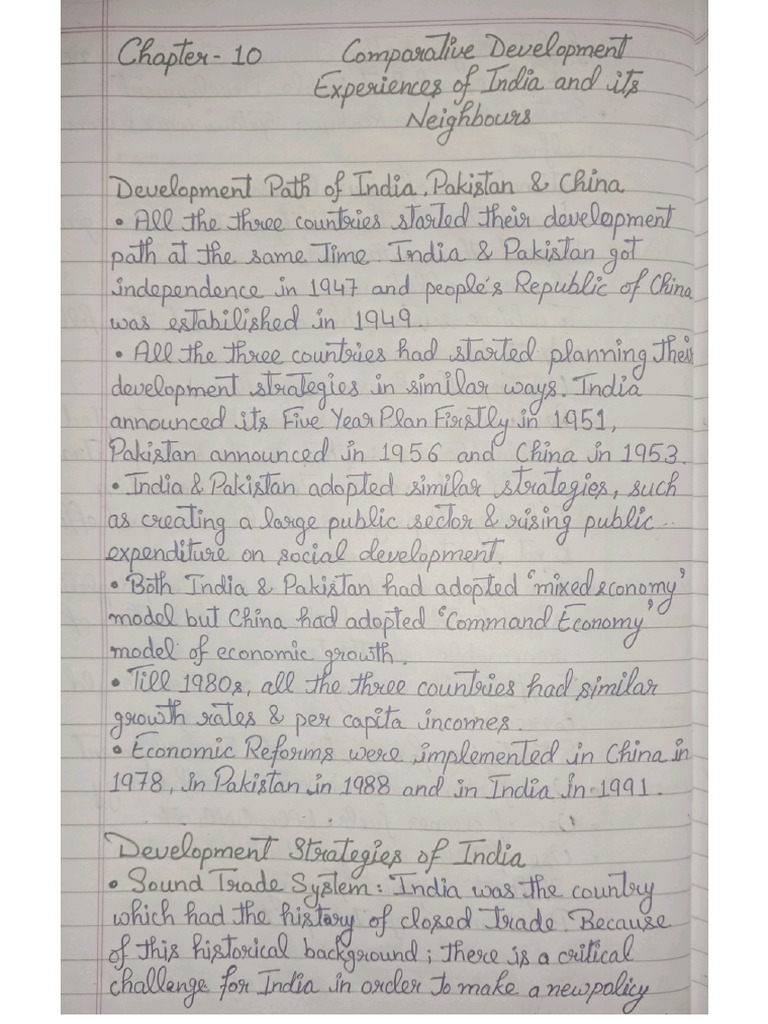 Chapter-10 Comparative Development
Experiences of India and its
Neighbours
Development Path of India, Pakistan & China
• All the three countries started their development
path at the same Time. India & Pakistan got
independence in 1947 and people's Republic of China
was estabilished in 1949.
• All the three countries had started planning their
development strategies in similar ways. India
announced its Five Year Plan Firstly in 1951,
Pakistan announced in 1956 and China in 1953.
• India & Pakistan adopted similar strategies, such
as creating a large public sector & rising public
expenditure on social development.
• Both India & Pakistan had adopted 'mixed economy'
model but China had adopted 'Command Economy'
model of economic growth.
• Till 1980s, all the three countries had similar
growth rates & per capita incomes.
• Economic Reforms were implemented in China in
1978, in Pakistan in 1988 and in India in 1991.
Development Strategies of India
• Sound Trade System: India was the country
which had the history of closed trade. Because
of this historical background; there is a critical
challenge for India in order to make a new policy